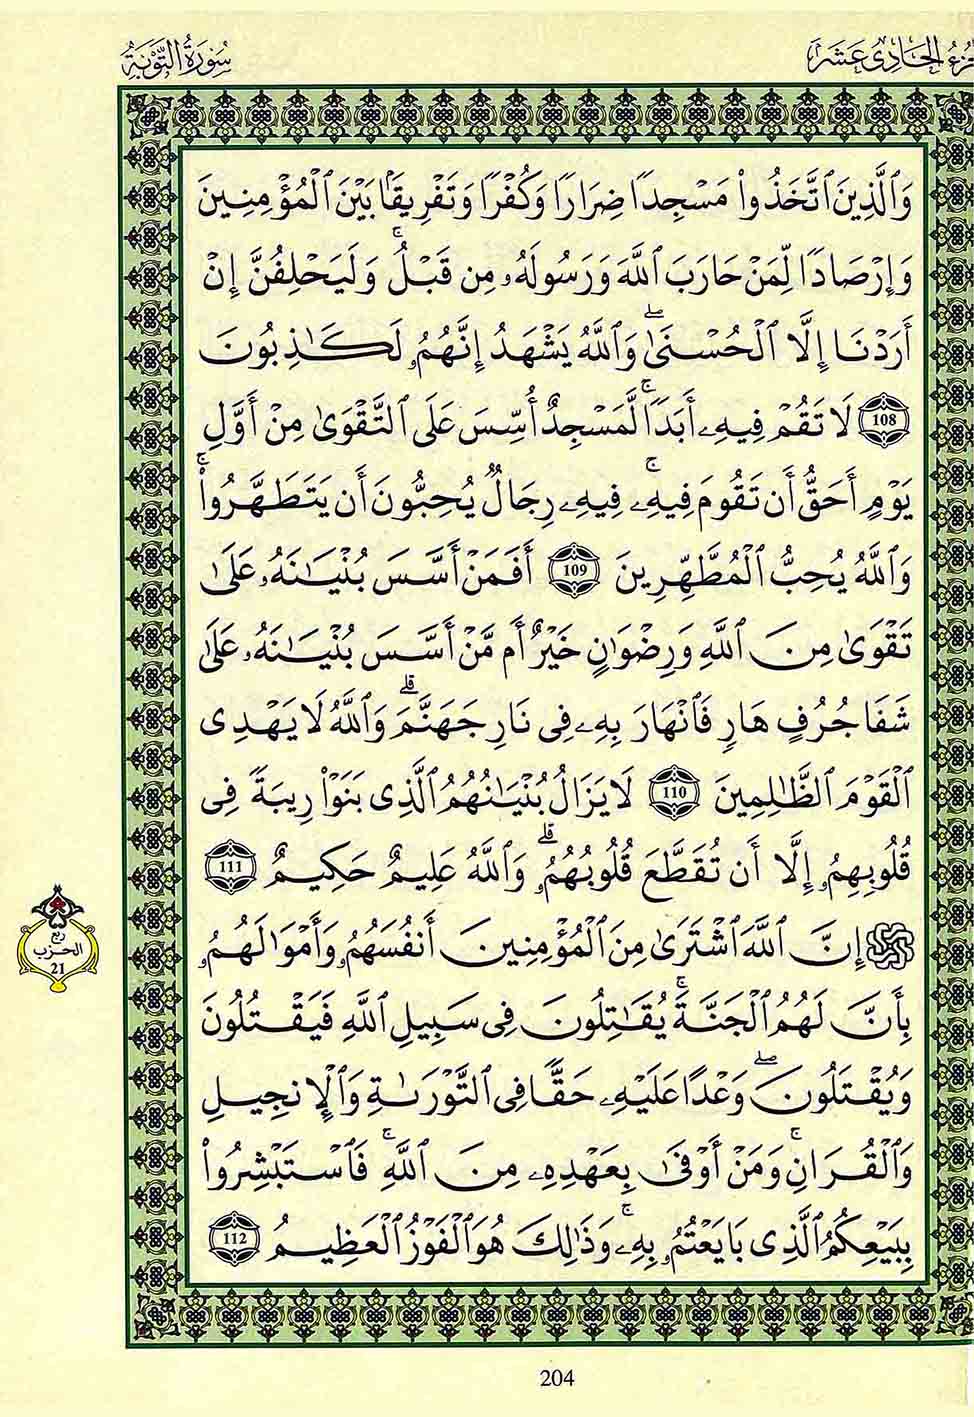 الجزء الحَادِى عَشَرَ
سُورَةُ التَّوْبَةِ
وَٱلَّذِينَ ٱتَّخَذُوا۟ مَسْجِدًا ضِرَارًا وَكُفْرًا وَتَفْرِيقًۢا بَيْنَ ٱلْمُؤْمِنِينَ
وَإِرْصَادًا لِّمَنْ حَارَبَ ٱللَّهَ وَرَسُولَهُۥ مِن قَبْلُ ۚ وَلَيَحْلِفُنَّ إِنْ
أَرَدْنَا إِلَّا ٱلْحُسْنَىٰ ۖ وَٱللَّهُ يَشْهَدُ إِنَّهُمُۥ لَكَـٰذِبُونَ
108 لَا تَقُمْ فِيهِۦ أَبَدًا ۚ لَّمَسْجِدٌ أُسِّسَ عَلَى ٱلتَّقْوَىٰ مِنْ أَوَّلِ
يَوْمٍ أَحَقُّ أَن تَقُومَ فِيهِۦ ۚ فِيهِۦ رِجَالٌ يُحِبُّونَ أَن يَتَطَهَّرُوا۟ ۚ
وَٱللَّهُ يُحِبُّ ٱلْمُطَّهِّرِينَ 109 أَفَمَنْ أَسَّسَ بُنْيَـٰنَهُۥ عَلَىٰ
تَقْوَىٰ مِنَ ٱللَّهِ وَرِضْوَٰنٍ خَيْرٌ أَم مَّنْ أَسَّسَ بُنْيَـٰنَهُۥ عَلَىٰ
شَفَا جُرُفٍ هَارٍ فَٱنْهَارَ بِهِۦ فِى نَارِ جَهَنَّمَ ۗ وَٱللَّهُ لَا يَهْدِى
ٱلْقَوْمَ ٱلظَّـٰلِمِينَ 110 لَا يَزَالُ بُنْيَـٰنُهُمُ ٱلَّذِى بَنَوْا۟ رِيبَةً فِى
قُلُوبِهِمُۥ إِلَّا أَن تُقَطَّعَ قُلُوبُهُمُۥ ۗ وَٱللَّهُ عَلِيمٌ حَكِيمٌ 111
۞ إِنَّ ٱللَّهَ ٱشْتَرَىٰ مِنَ ٱلْمُؤْمِنِينَ أَنفُسَهُمُۥ وَأَمْوَٰلَهُمُۥ
بِأَنَّ لَهُمُ ٱلْجَنَّةَ ۚ يُقَـٰتِلُونَ فِى سَبِيلِ ٱللَّهِ فَيَقْتُلُونَ
وَيُقْتَلُونَ ۖ وَعْدًا عَلَيْهِۦ حَقًّا فِى ٱلتَّوْرَىٰةِ وَٱلْإِنجِيلِ
وَٱلْقُرَانِ ۚ وَمَنْ أَوْفَىٰ بِعَهْدِهِۦ مِنَ ٱللَّهِ ۚ فَٱسْتَبْشِرُوا۟
بِبَيْعِكُمُ ٱلَّذِى بَايَعْتُمُۥ بِهِۦ ۚ وَذَٰلِكَ هُوَ ٱلْفَوْزُ ٱلْعَظِيمُ 112
ربع
الحزب
21
204